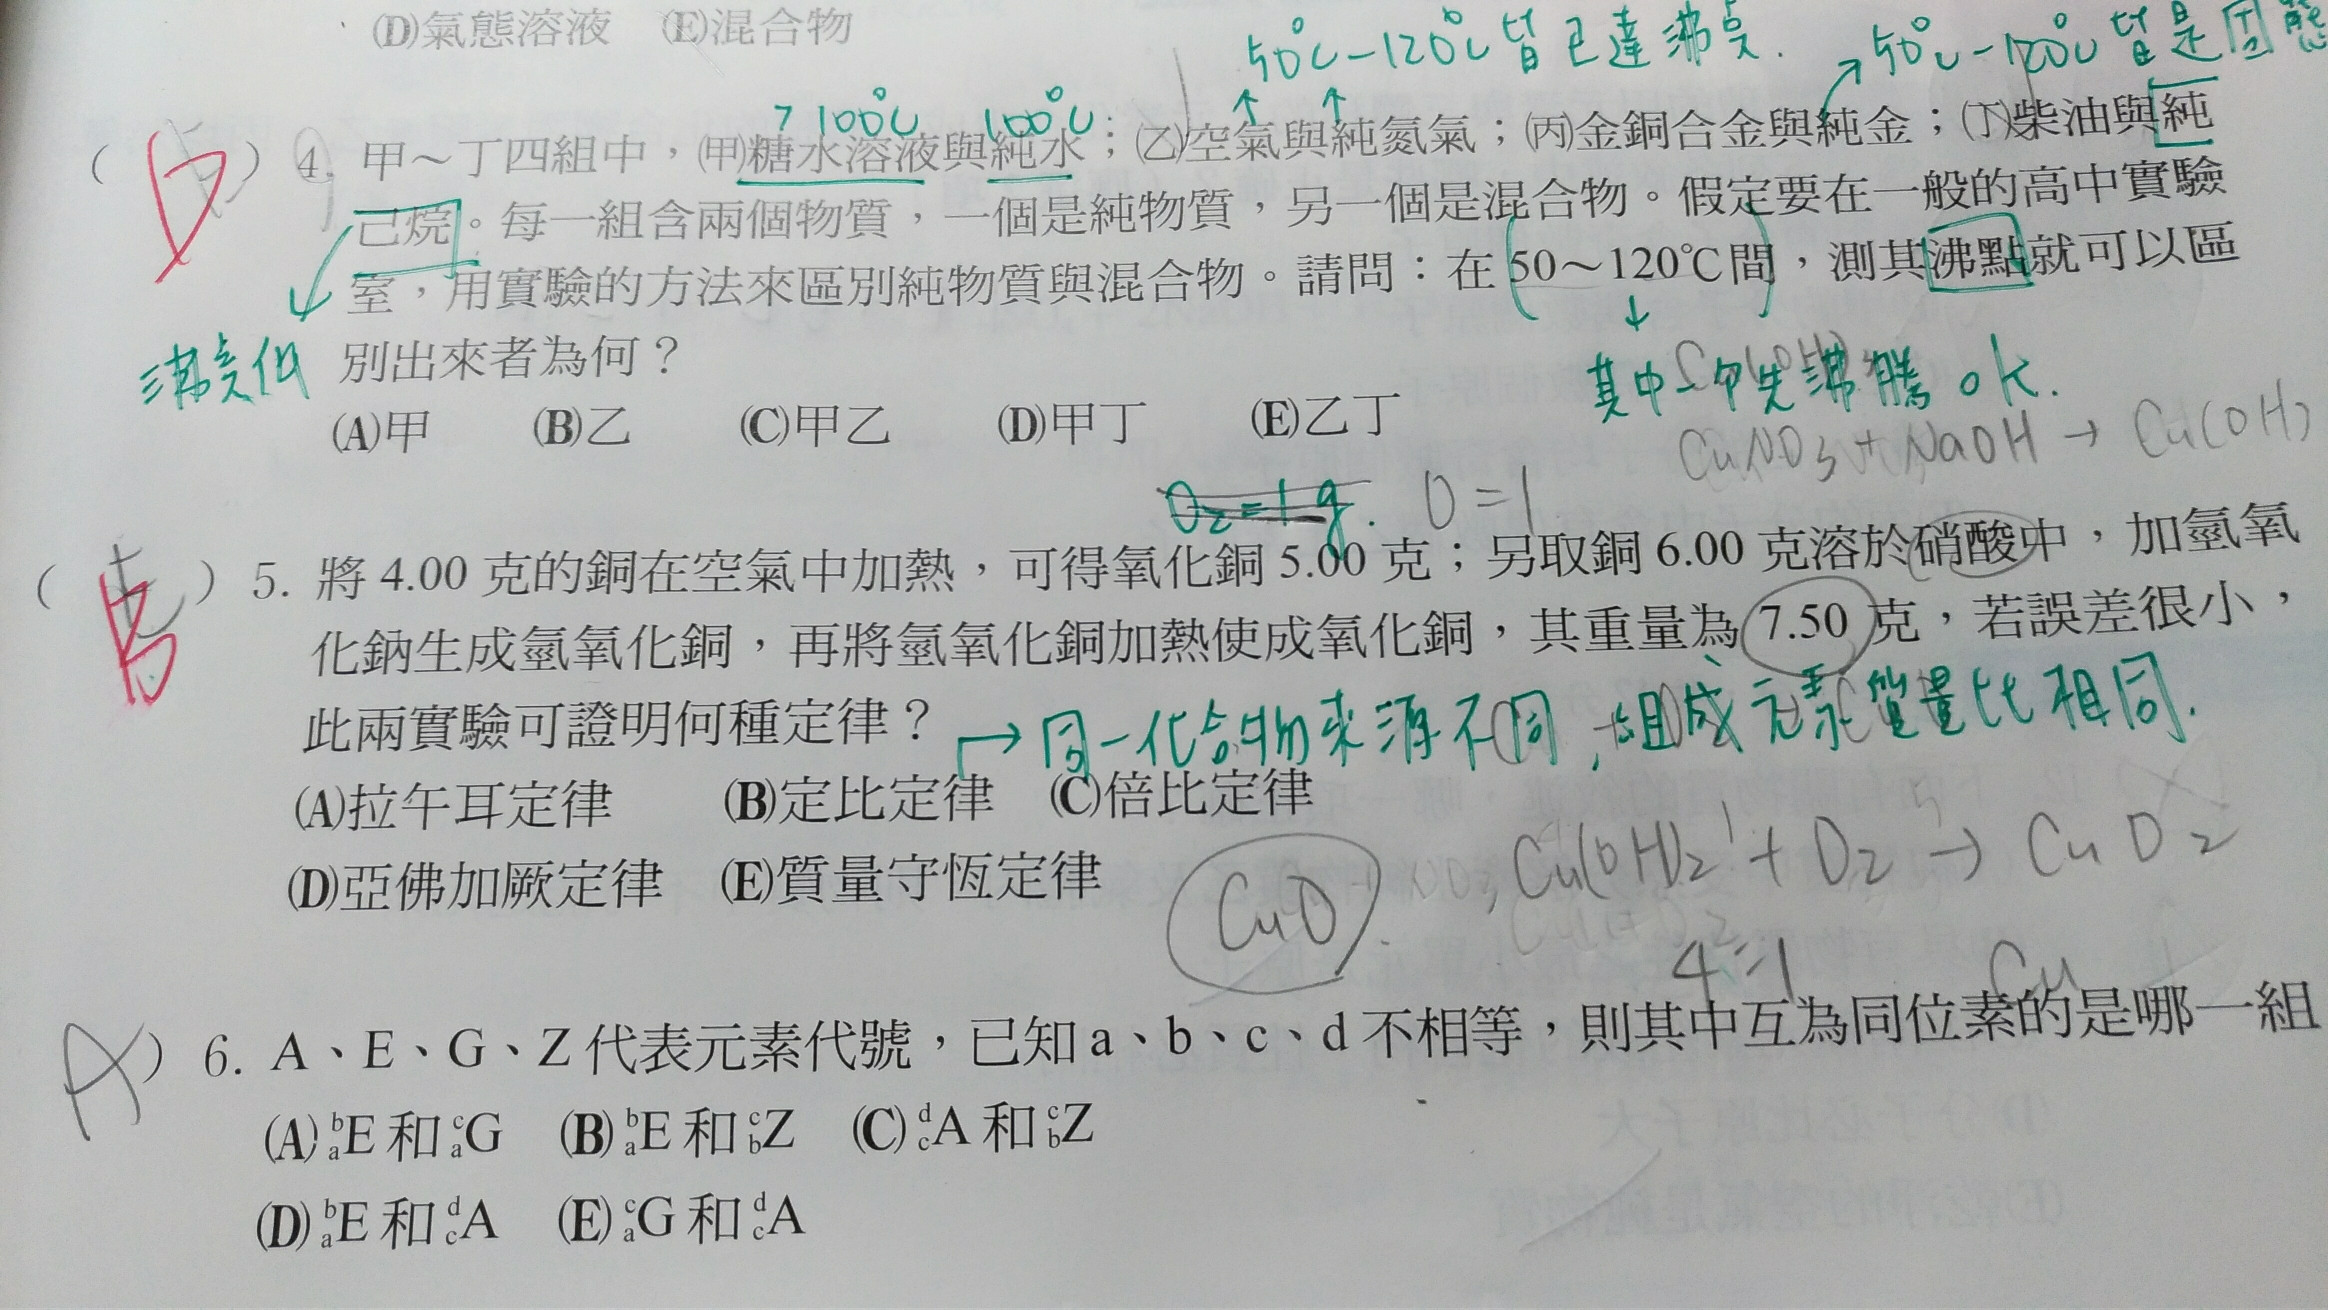 (D)氣態溶液 (E)混合物
50°C-120°C皆已達沸點.
50°C-120°C皆是固態
>100°C 100°C
( D ) 4. 甲～丁四組中，(甲)糖水溶液與純水；(乙)空氣與純氮氣；(丙)金銅合金與純金；(丁)柴油與純
己烷。每一組含兩個物質，一個是純物質，另一個是混合物。假定要在一般的高中實驗
室，用實驗的方法來區別純物質與混合物。請問：在50～120℃間，測其沸點就可以區
別出來者為何？
沸點低
其中一個先沸騰ok.
(A)甲 (B)乙 (C)甲乙 (D)甲丁 (E)乙丁
CuNO3+NaOH→Cu(OH)
O2=1g. O=1
( B ) 5. 將 4.00 克的銅在空氣中加熱，可得氧化銅 5.00 克；另取銅 6.00 克溶於硝酸中，加氫氧
化鈉生成氫氧化銅，再將氫氧化銅加熱使成氧化銅，其重量為 7.50 克，若誤差很小，
此兩實驗可證明何種定律？
→同一化合物來源不同,組成元素質量比相同.
(A)拉午耳定律 (B)定比定律 (C)倍比定律
(D)亞佛加厥定律 (E)質量守恆定律
CuO
Cu(OH)2+O2→CuO2
4:1 Cu
A ) 6. A、E、G、Z 代表元素代號，已知 a、b、c、d 不相等，則其中互為同位素的是哪一組
(A) ᵇₐE 和 ᶜₐG (B) ᵇₐE 和 ᶜbZ (C) ᵈcA 和 ᶜbZ
(D) ᵇₐE 和 ᵈcA (E) ᶜₐG 和 ᵈcA